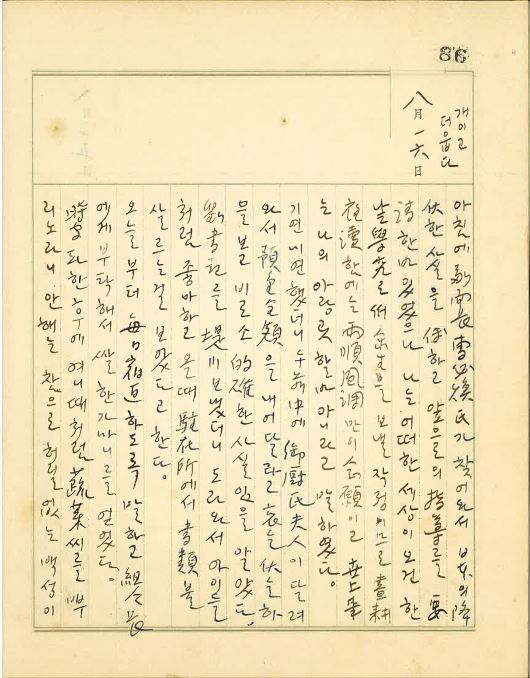 86
개이고
더읍다
八月一六日
아침에 副面長 曺 煥氏가 찾어와서 日本의 降
伏한 사실을 傳하고 앞으로의 指導를 要
請한바 있었으나 나는 어떠한 세상이 오건 한
낱 學究로써 余生을 보낼 작정이므로 晝耕
夜讀한에는 雨順風調만이 所願이고 世上事
는 나의 아랑곳할바 아니라고 말하였다.
기연미연했더니 午前中에 御厨氏夫人이 달려
와서 預金全額을 내어달라고 哀乞伏乞하
믈 보고 비로소 的確한 사실임을 알았다.
劉書記를 堤川 보냈더니 도라와서 아이들
처럼 좋아하고 올때 駐在所에서 書類 불
살르는걸 보았다고 한다.
오늘부터 每日宿直하도록 말하고 組長
에게 부탁해서 쌀 한가마니를 얻었다.
한 후에 여니때처럼 蔬菜씨를 뿌
리노라니 안해는 참으로 허릴없는 백성이